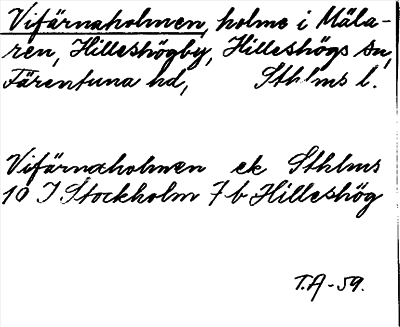 Vifärnaholmen, holme i Mäla-
ren, Hilleshögby, Hilleshögs sn,
Färentuna hd, Sthlms l.
Vifärnaholmen ek Sthlms
10 J. Stockholm 7 b Hilleshög
T.A-59.